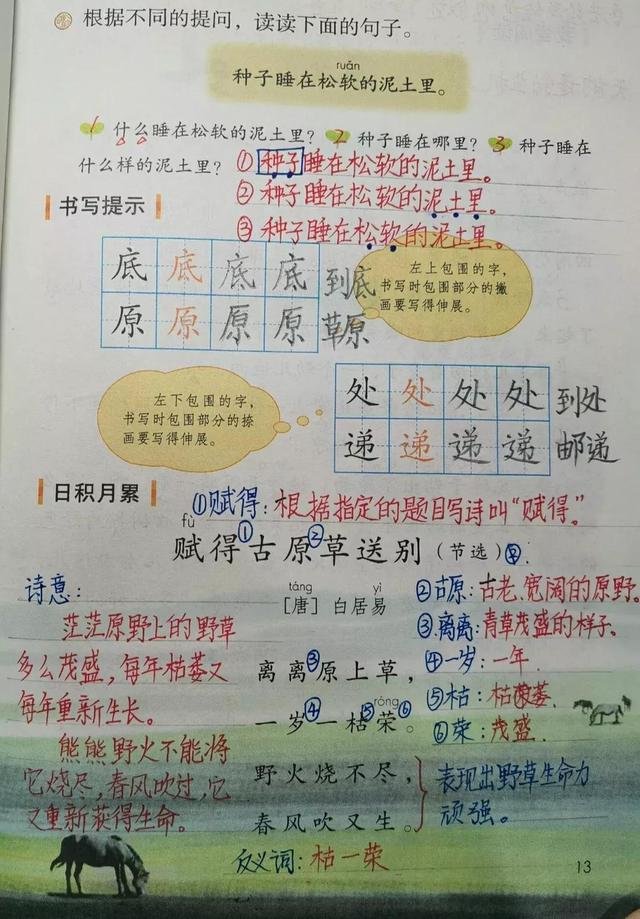 根据不同的提问，读读下面的句子。
ruǎn
种子睡在松软的泥土里。
1 什么睡在松软的泥土里？ 2 种子睡在哪里？ 3 种子睡在
什么样的泥土里？ ①种子睡在松软的泥土里。
②种子睡在松软的泥土里。
③种子睡在松软的泥土里。
书写提示
底 底 底 底 到底
原 原 原 原 草原
左上包围的字，
书写时包围部分的撇
画要写得伸展。
左下包围的字，
书写时包围部分的捺
画要写得伸展。
处 处 处 处 到处
递 递 递 递 邮递
日积月累
①赋得：根据指定的题目写诗叫“赋得。”
fù
赋得①古原②草送别（节选）
táng yì
[唐] 白居易
离离③原上草，
róng
一岁④一枯⑤荣⑥。
野火烧不尽，
春风吹又生。
诗意：
茫茫原野上的野草
多么茂盛，每年枯萎又
每年重新生长。
熊熊野火不能将
它烧尽，春风吹过，它
又重新获得生命。
②古原：古老、宽阔的原野。
③离离：青草茂盛的样子。
④一岁：一年.
⑤枯：枯萎.
⑥荣：茂盛.
表现出野草生命力
顽强。
反义词：枯—荣
13